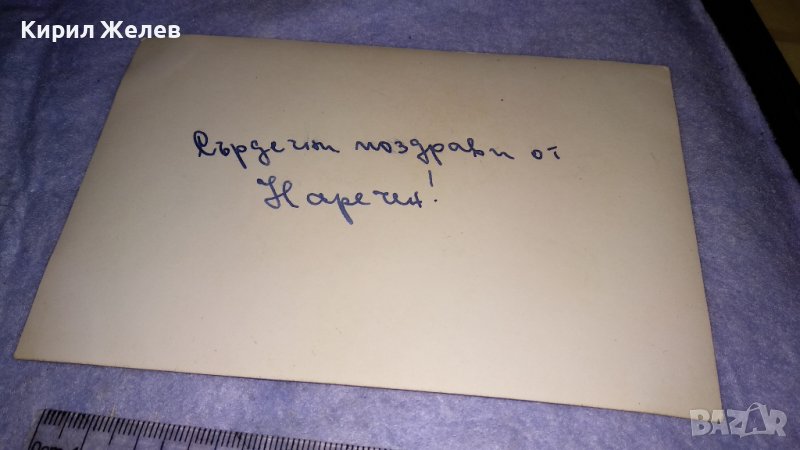 Кирил Желев
Сърдечни поздрави от
Наречен!
BAZAR